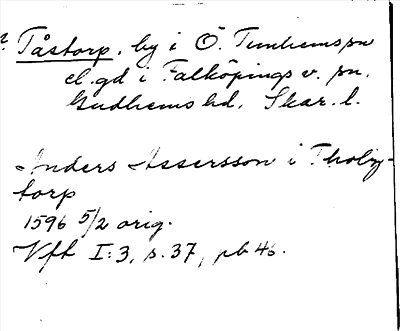 ? Tåstorp, by i Ö. Tunhems sn
el. gd i Falköpings v. sn.
Gudhems hd. Skar. l.
Anders Assersson i Tholij-
torp
1596 5/2 orig.
Vft I:3, s. 37, pb 46.